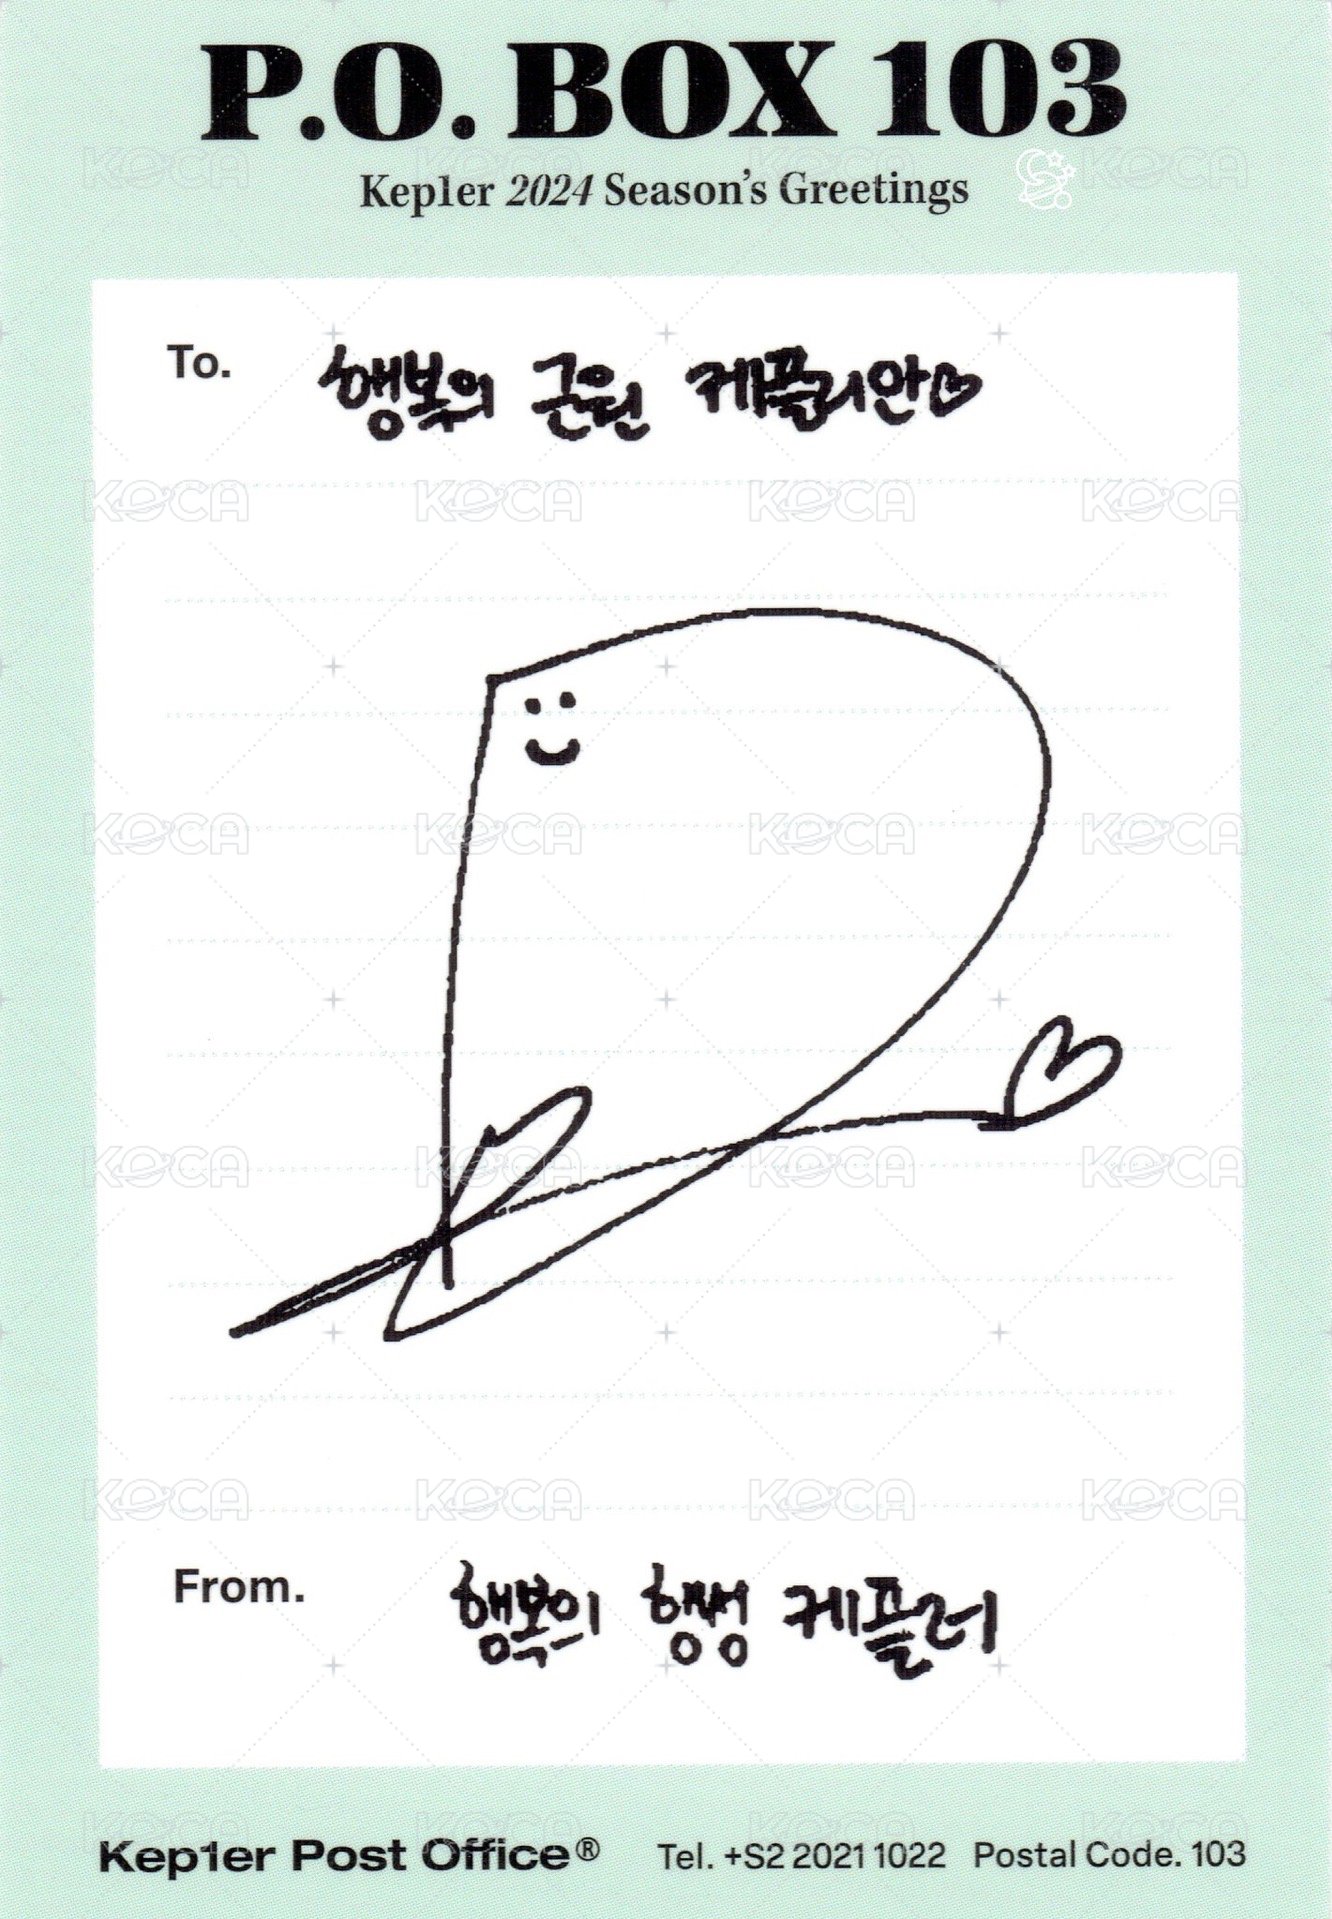 P.O. BOX 103
Kep1er 2024 Season's Greetings
To. 행복의 근원 케플리안♡
From. 행복의 행성 케플러
Kep1er Post Office® Tel. +S2 2021 1022 Postal Code. 103
KOCA